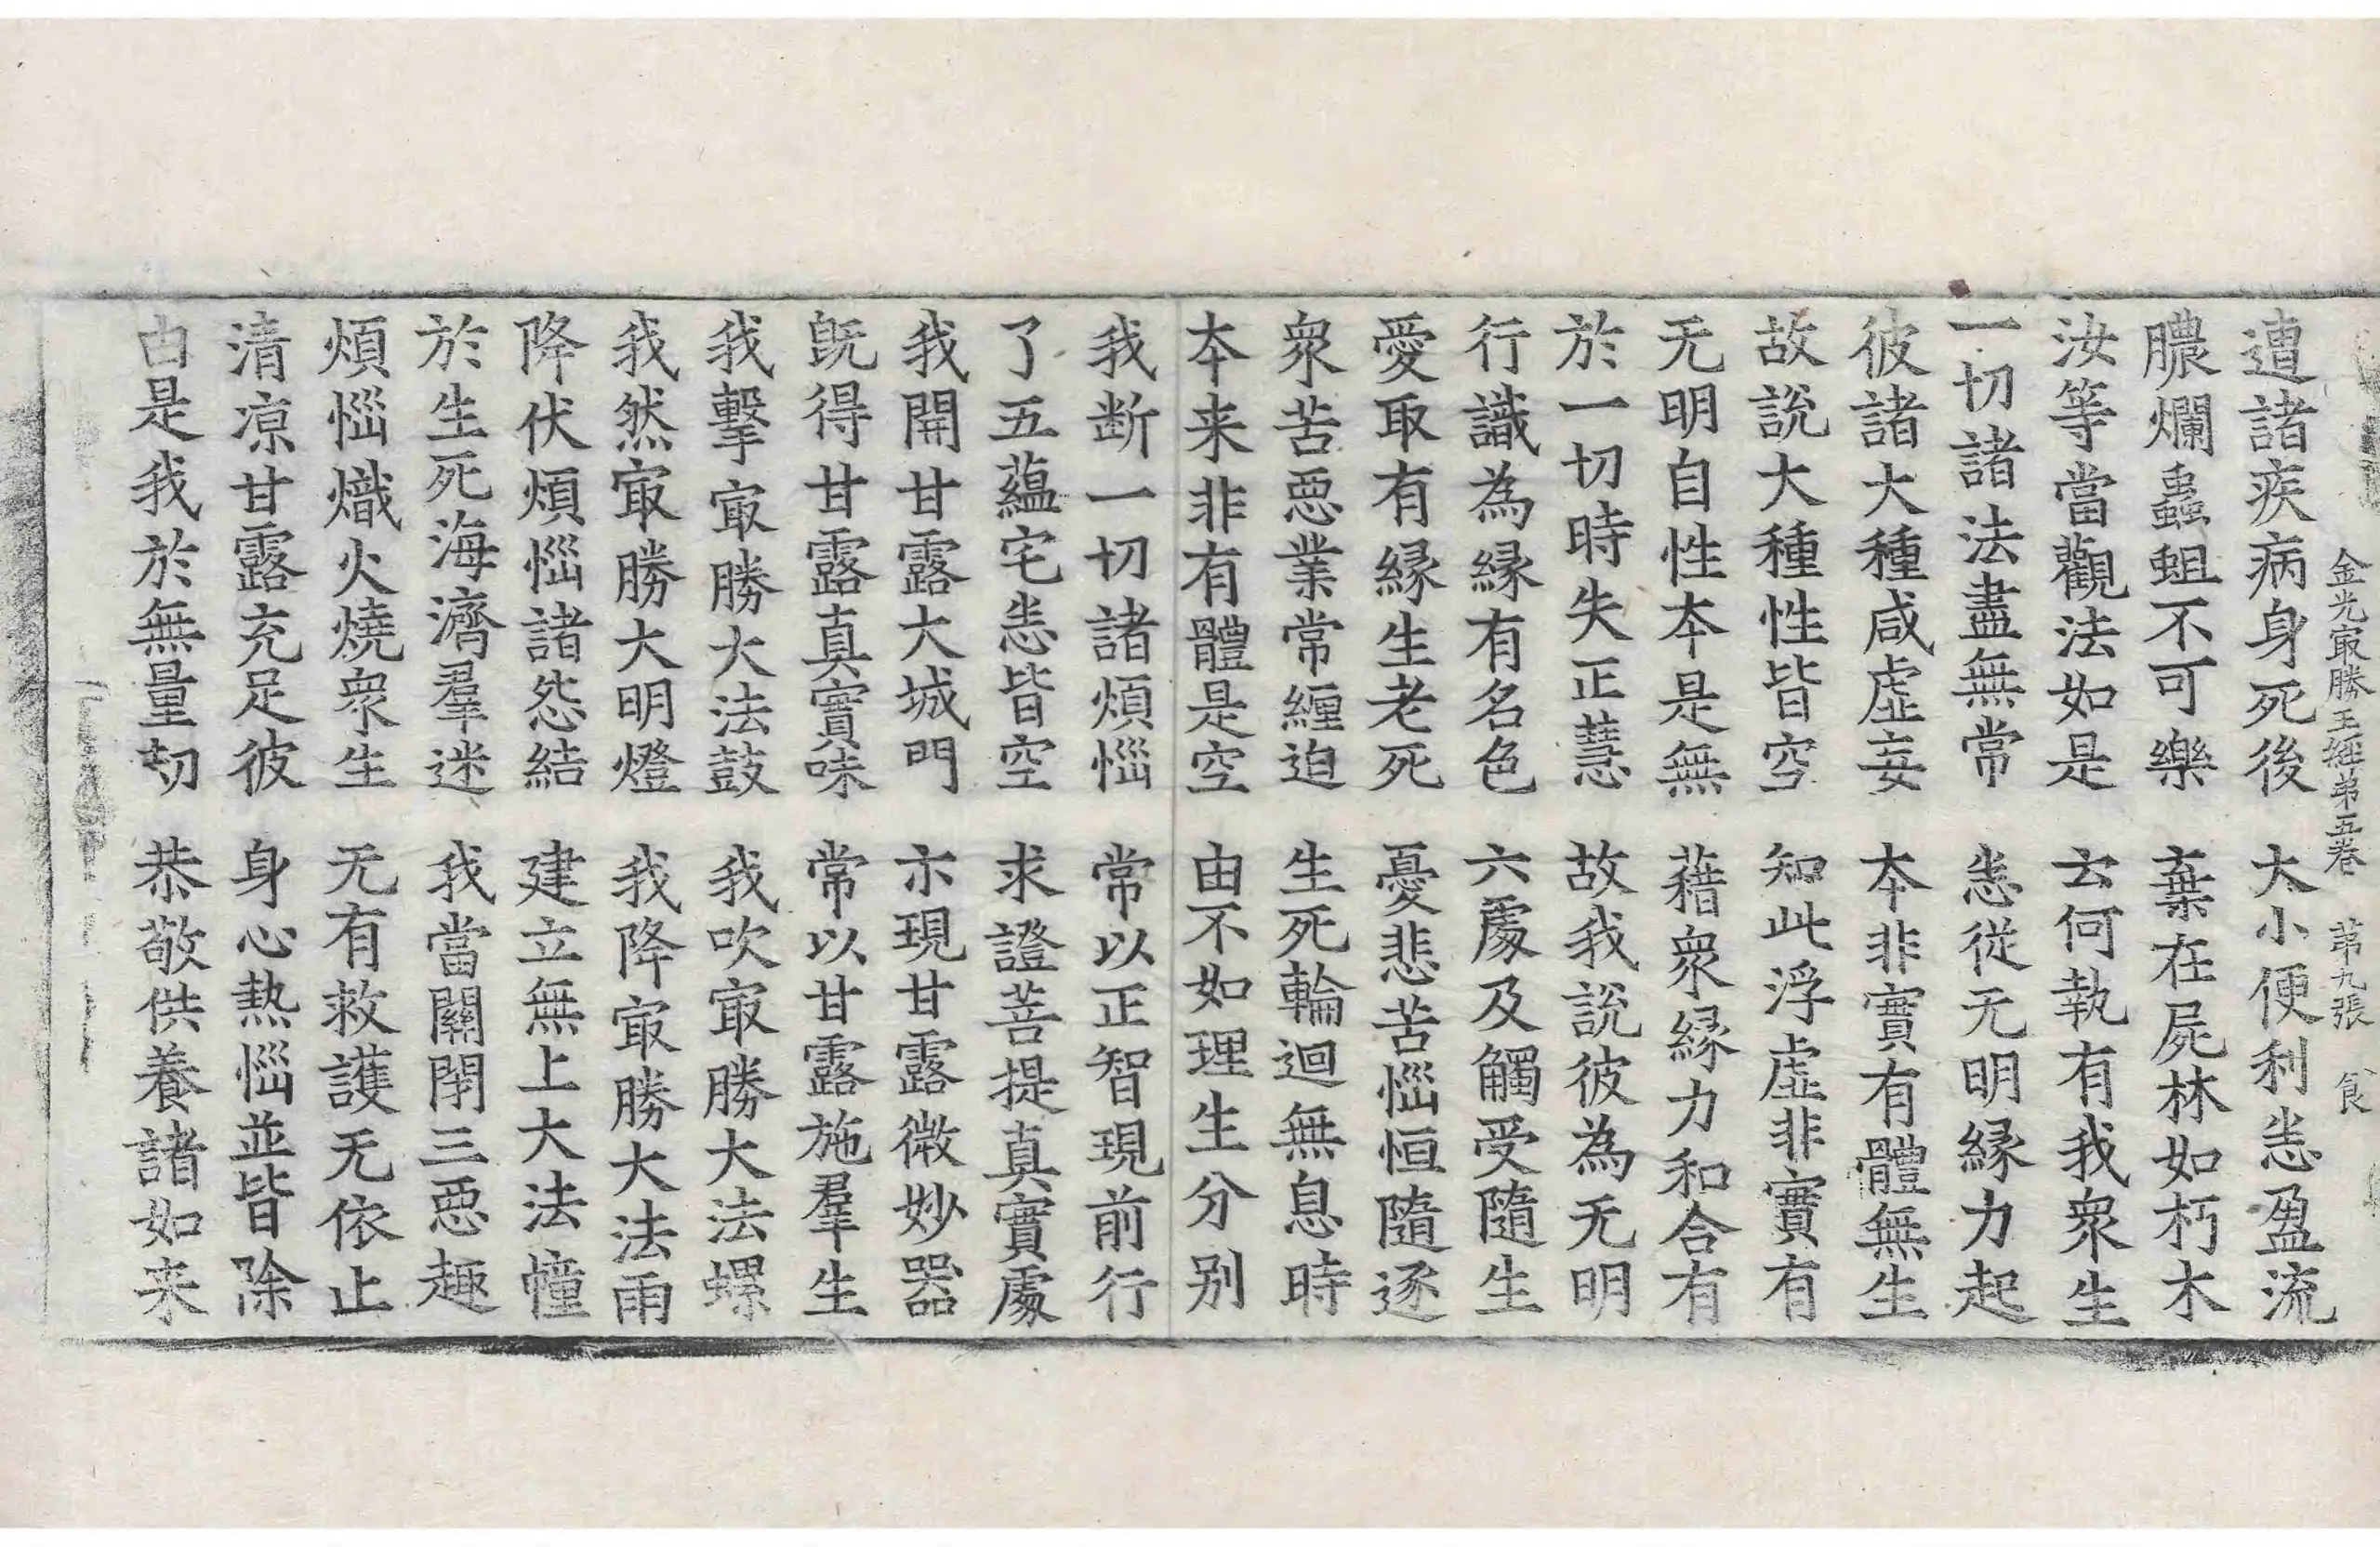 金光㝡勝王經第五卷　第九張　食
遭諸疾病身死後　大小便利悉盈流
膿爛蟲蛆不可樂　棄在屍林如朽木
汝等當觀法如是　云何執有我衆生
一切諸法盡無常　悉從无明緣力起
彼諸大種咸虛妄　本非實有體無生
故說大種性皆空　知此浮虛非實有
无明自性本是無　藉衆緣力和合有
於一切時失正慧　故我說彼為无明
行識為緣有名色　六處及觸受隨生
愛取有緣生老死　憂悲苦惱恒隨逐
衆苦惡業常纏迫　生死輪迴無息時
本来非有體是空　由不如理生分别
我断一切諸煩惱　常以正智現前行
了五蘊宅悉皆空　求證菩提真實處
我開甘露大城門　示現甘露微妙器
既得甘露真實味　常以甘露施羣生
我擊㝡勝大法鼓　我吹㝡勝大法螺
我然㝡勝大明燈　我降㝡勝大法雨
降伏煩惱諸怨結　建立無上大法幢
於生死海濟羣迷　我當關閉三惡趣
煩惱熾火燒衆生　无有救護无依止
清凉甘露充足彼　身心熱惱並皆除
由是我於無量劫　恭敬供養諸如来